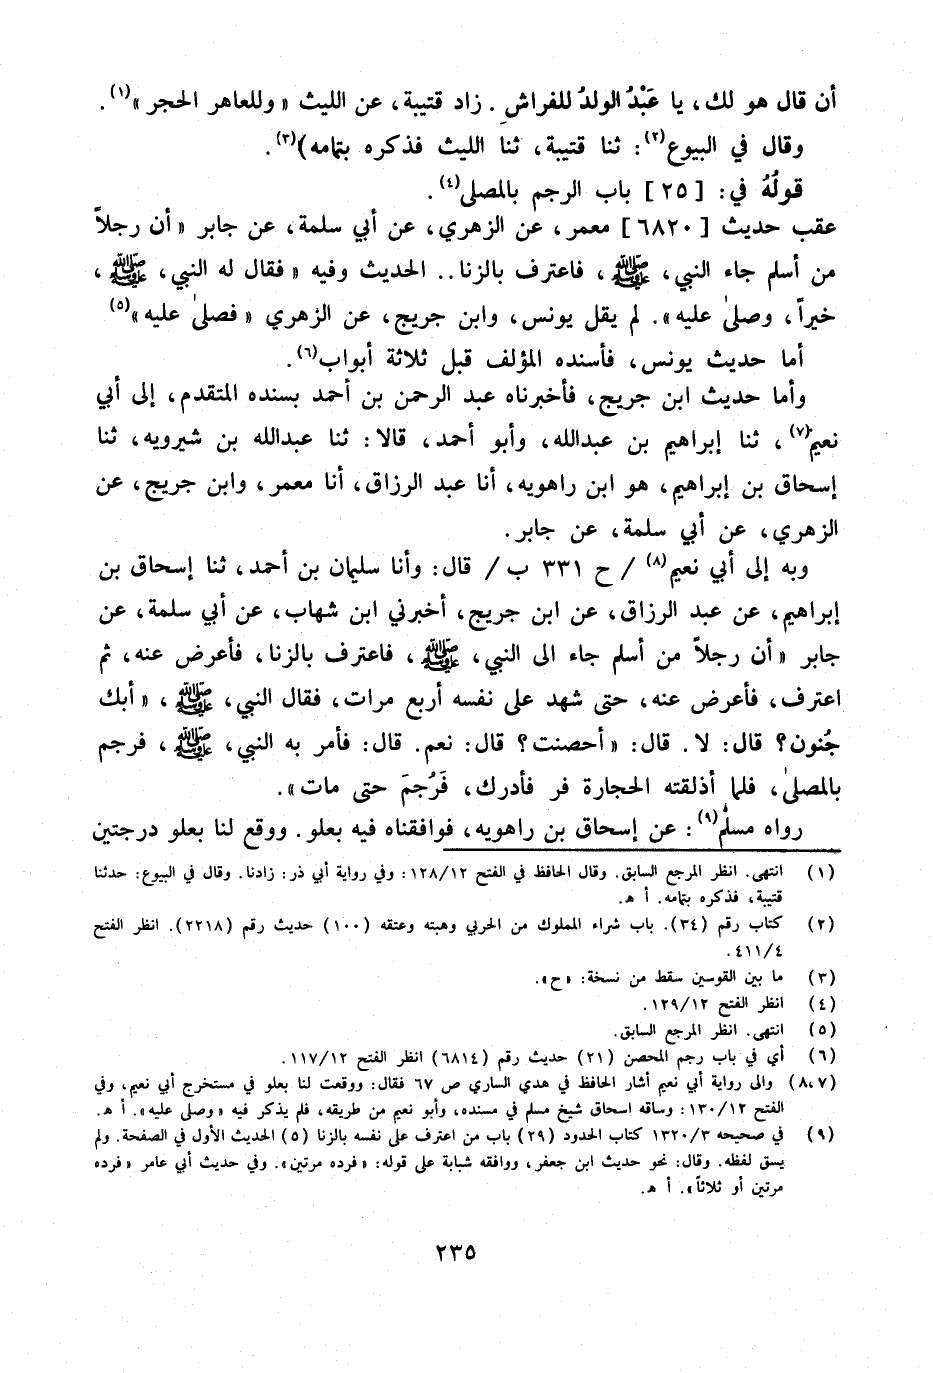 أن قال هو لك، يا عَبْدُ الولدُ للفراشِ. زاد قتيبة، عن الليث «وللعاهر الحجر»(١).
وقال في البيوع(٢): ثنا قتيبة، ثنا الليث فذكره بتمامه)(٣).
قولُهُ في: [٢٥] باب الرجم بالمصلى(٤).
عقب حديث [٦٨٢٠] معمر، عن الزهري، عن أبي سلمة، عن جابر «أن رجلاً
من أسلم جاء النبي، ﷺ، فاعترف بالزنا.. الحديث وفيه «فقال له النبي، ﷺ،
خيراً، وصلىٰ عليه». لم يقل يونس، وابن جريج، عن الزهري «فصلىٰ عليه»(٥)
أما حديث يونس، فأسنده المؤلف قبل ثلاثة أبواب(٦).
وأما حديث ابن جريج، فأخبرناه عبد الرحمن بن أحمد بسنده المتقدم، إلى أبي
نعيم(٧)، ثنا إبراهيم بن عبدالله، وأبو أحمد، قالا: ثنا عبدالله بن شيرويه، ثنا
إسحاق بن إبراهيم، هو ابن راهويه، أنا عبد الرزاق، أنا معمر، وابن جريج، عن
الزهري، عن أبي سلمة، عن جابر.
وبه إلى أبي نعيم(٨) / ح ٣٣١ ب / قال: وأنا سليمان بن أحمد، ثنا إسحاق بن
إبراهيم، عن عبد الرزاق، عن ابن جريج، أخبرني ابن شهاب، عن أبي سلمة، عن
جابر «أن رجلاً من أسلم جاء الى النبي، ﷺ، فاعترف بالزنا، فأعرض عنه، ثم
اعترف، فأعرض عنه، حتى شهد على نفسه أربع مرات، فقال النبي، ﷺ، «أبك
جُنون؟ قال: لا. قال: «أحصنت؟ قال: نعم. قال: فأمر به النبي، ﷺ، فرجم
بالمصلىٰ، فلما أذلقته الحجارة فر فأدرك، فَرُجمَ حتى مات».
رواه مسلم(٩): عن إسحاق بن راهويه، فوافقناه فيه بعلو. ووقع لنا بعلو درجتين
(١) انتهى. انظر المرجع السابق. وقال الحافظ في الفتح ١٢٨/١٢: وفي رواية أبي ذر: زادنا. وقال في البيوع: حدثنا
قتيبة، فذكره بتمامه. أ هـ.
(٢) كتاب رقم (٣٤). باب شراء المملوك من الحربي وهبته وعتقه (١٠٠) حديث رقم (٢٢١٨). انظر الفتح
٤١١/٤.
(٣) ما بين القوسين سقط من نسخة: «ح».
(٤) انظر الفتح ١٢٩/١٢.
(٥) انتهى. انظر المرجع السابق.
(٦) أي في باب رجم المحصن (٢١) حديث رقم (٦٨١٤) انظر الفتح ١١٧/١٢.
(٨،٧) والى رواية أبي نعيم أشار الحافظ في هدي الساري ص ٦٧ فقال: ووقعت لنا بعلو في مستخرج أبي نعيم، وفي
الفتح ١٣٠/١٢: وساقه اسحاق شيخ مسلم في مسنده، وأبو نعيم من طريقه، فلم يذكر فيه «وصلى عليه». أ هـ.
(٩) في صحيحه ١٣٢٠/٣ كتاب الحدود (٢٩) باب من اعترف على نفسه بالزنا (٥) الحديث الأول في الصفحة. ولم
يسق لفظه. وقال: نحو حديث ابن جعفر، ووافقه شبابة على قوله: «فرده مرتين». وفي حديث أبي عامر «فرده
مرتين أو ثلاثاً». أ هـ.
٢٣٥